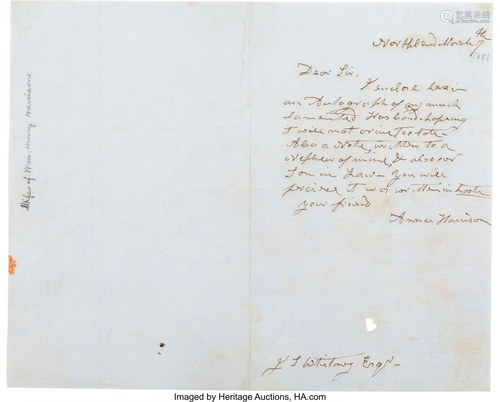 North Bend March 7th
1851
Dear Sir,
I enclose herein
an Autograph of my much
lamented Husband hoping
it will not arive too late
Also a note written to a
Nephew of mine, & also our
Son in Law - you will
percieve it was written in haste
your friend
Anna Harrison
J S Whitney Esqr -
Wife of Wm. Henry Harrison
Imaged by Heritage Auctions, HA.com